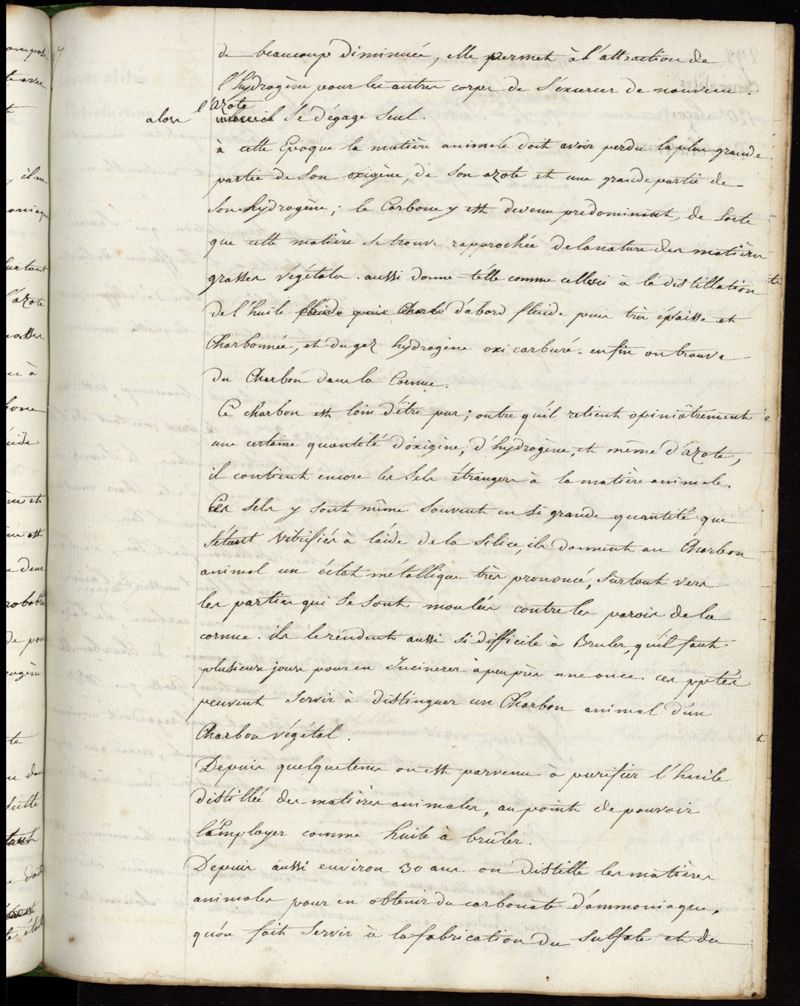 de beaucoup diminuée, elle permet à l'attraction de
l'hydrogène pour les autres corps de s'exercer de nouveau.
alors l'azote se dégage seul.
à cette Epoque la matière animale doit avoir perdu la plus grande
partie de son oxigène, de son azote et une grande partie de
son hydrogène; le Carbone y est devenu prédominant, de sorte
que cette matière se trouve rapprochée de la nature des matières
grasses végétales. aussi donne-t-elle comme celles ci à la distillation
de l'huile d'abord fluide puis très épaisse et
Charbonnée, et du gaz hydrogène oxi carburé. enfin on trouve
du Charbon dans la Cornue.
Ce charbon est loin d'être pur; outre qu'il retient opiniâtrement
une certaine quantité d'oxigène, d'hydrogène, et même d'azote,
il contient encore les sels étrangers à la matière animale.
Ces sels y sont même souvent en si grande quantité que
s'étant vitrifiés à l'aide de la silice, ils donnent au Charbon
animal un éclat métallique très prononcé, surtout vers
les parties qui se sont moulées contre les parois de la
cornue. ils le rendent aussi si difficile à Bruler, qu'il faut
plusieurs jours pour en incinerer à peu près une once. ces pptés
peuvent servir à distinguer un Charbon animal d'un
Charbon végétal.
Depuis quelque tems on est parvenu à purifier l'huile
distillée des matières animales, au point de pouvoir
l'employer comme huile à brûler.
Depuis aussi environ 30 ans on distille les matières
animales pour en obtenir du carbonate d'ammoniaque,
qu'on fait servir à la fabrication du sulfate et du